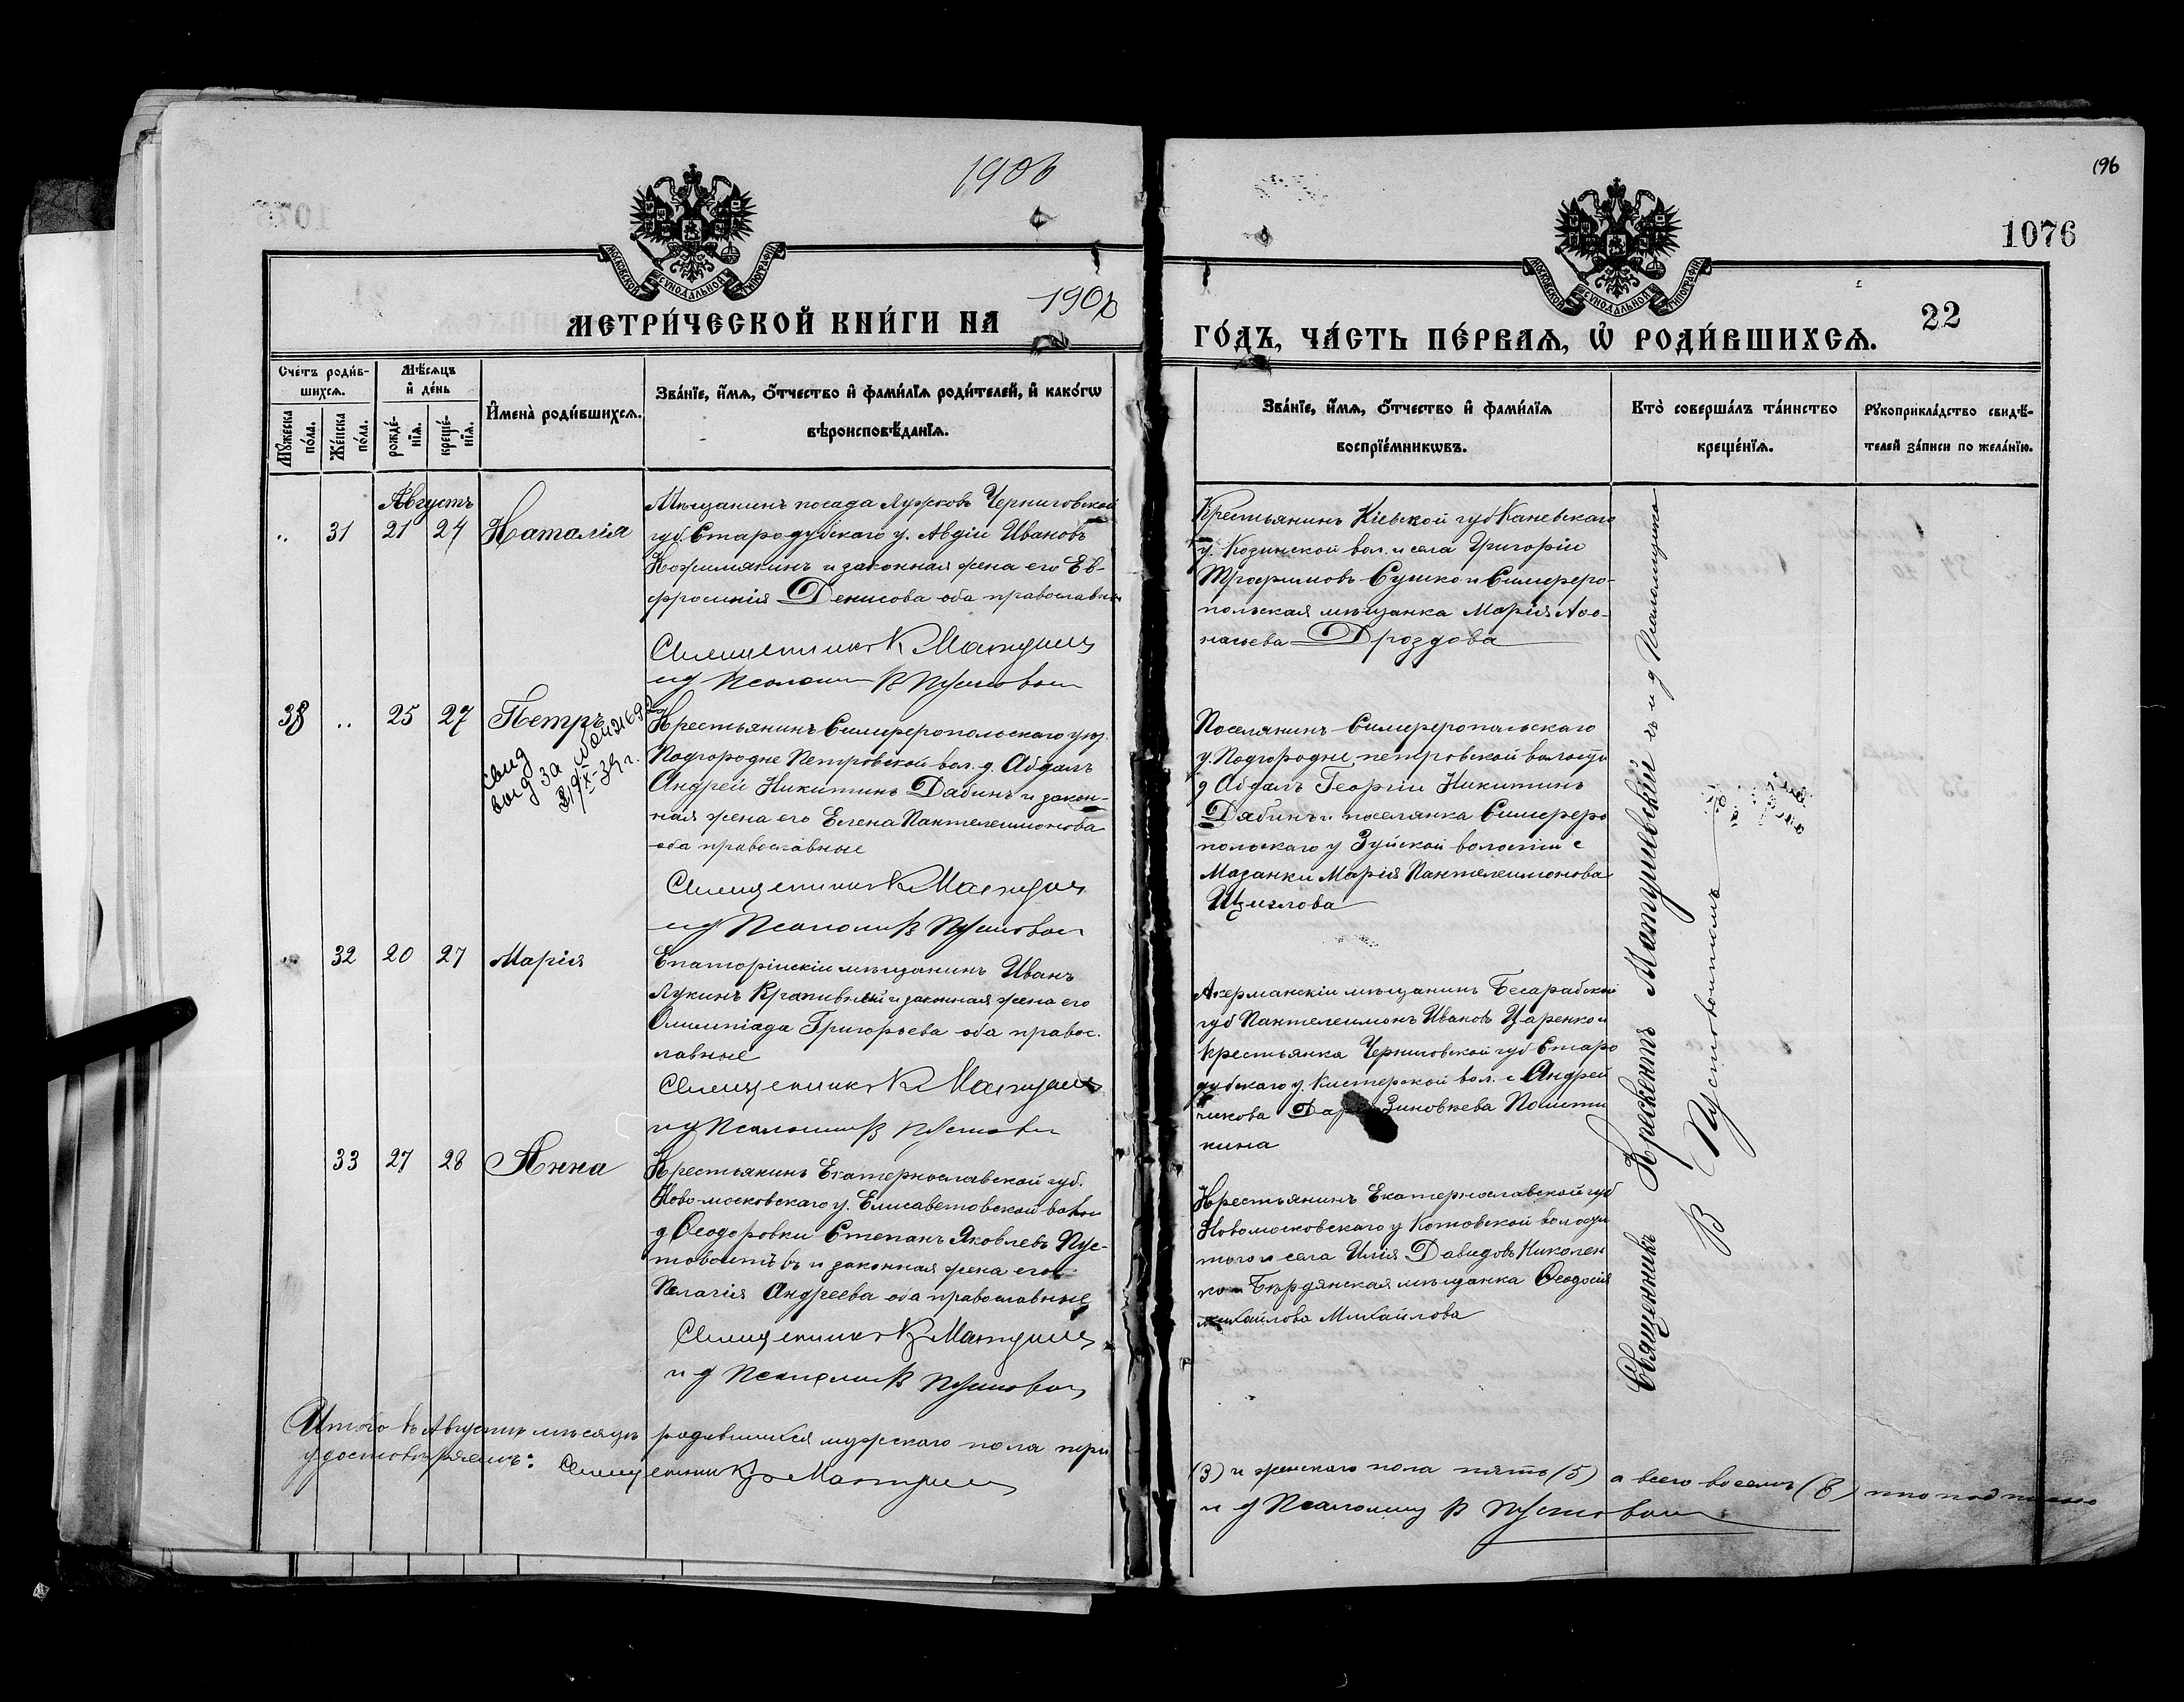 1906
196
1076
МОСКОВСКОЙ СѴНОДАЛЬНОЙ ТИПОГРАФІИ
МОСКОВСКОЙ СѴНОДАЛЬНОЙ ТИПОГРАФІИ
22
МЕТРИ́ЧЕСКОЙ КНИ́ГИ НА 190
ГО́ДЪ, ЧА́СТЬ ПЕ́РВАѦ, Ѡ҆ РОДИ́ВШИХСѦ.
Сче́тъ роди́в-
шихсѧ.
Мꙋ́жеска
по́ла.
Же́нска
по́ла.
Мѣ́сѧцъ
и҆ де́нь
рожде́-
нїѧ.
креще́-
нїѧ.
И҆мена̀ роди́вшихсѧ.
Зва́нїе, и҆́мѧ, ѻ҆́тчество и҆ фами́лїѧ роди́телей, и҆ како́гѡ
вѣроисповѣ́данїѧ.
Зва́нїе, и҆́мѧ, ѻ҆́тчество и҆ фами́лїѧ
воспрїе́мникѡвъ.
Кто̀ соверша́лъ та́инство
креще́нїѧ.
Рꙋкоприкла́дство свидѣ́-
телей за́писи по жела́нїю.
Августъ
" 31 21 24 Наталія
Мѣщанинъ посада Лужковъ Черниговской
губ. Стародубскаго у. Авдій Ивановъ
Кожемякинъ и законная жена его Ев-
фросинія Денисова оба православные
Священникъ К Матуше
и д Псаломщ В Пустовой
Крестьянинъ Кіевской губ Каневскаго
у. Козинской вол. и села Григорій
Трофимовъ Сушко и Симферо-
польская мѣщанка Марія Аѳа-
насьева Дроздова
38 " 25 27 Петръ
свид
выд за № 2169
3/IX-39 г.
Крестьянинъ Симферопольскаго уѣз.
Подгородне Петровской вол. д. Абдалъ
Андрей Никитинъ Дябинъ и закон-
ная жена его Елена Пантелеимонова
оба православные
Священникъ К Матуше
и д Псаломщ В Пустовой
Поселянинъ Симферопольскаго
у. Подгородне петровской волости
д Абдалъ Георгій Никитинъ
Дябинъ и поселянка Симферо
польскаго у Зуйской волости с
Мазанки Марія Пантелеимонова
Щеглова
" 32 20 27 Марія
Евпаторійскій мѣщанинъ Иванъ
Лукинъ Крапивный и законная жена его
Олимпіада Григорьева оба правос-
лавные
Священникъ К Матуше
и д Псаломщ В Пустовой
Акерманскій мѣщанинъ Бесарабской
губ Пантелеимонъ Ивановъ Царенко и
крестьянка Черниговской губ Старо
дубскаго у. Кистерской вол. с Андрей
чикова Дарія Зиновьева
кина
33 27 28 Анна
Крестьянинъ Екатеринославской губ.
Новомосковскаго у. Елисаветовской волос
д Ѳеодоровки Степанъ Яковлевъ Пус-
товойтъ и законная жена его
Пелагія Андреева оба православные
Священникъ К Матуше
и д Псаломщ В Пустовой
Крестьянинъ Екатеринославской губ
Новомосковскаго у Котовской волости
того и села Илія Давидовъ Николен
ко Бердянская мѣщанка Ѳеодосія
Михайлова Михайлова
Священникъ Крескентъ Матушевскій съ и д Псаломщика
В Пустовойтомъ
Итого въ Августѣ мѣсяцѣ родившихся мужскаго пола три
(3) и женскаго пола пять (5) а всего восемь (8) что подписью
удостовѣряемъ: Священникъ К Матуше
и д Псаломщ В Пустовой